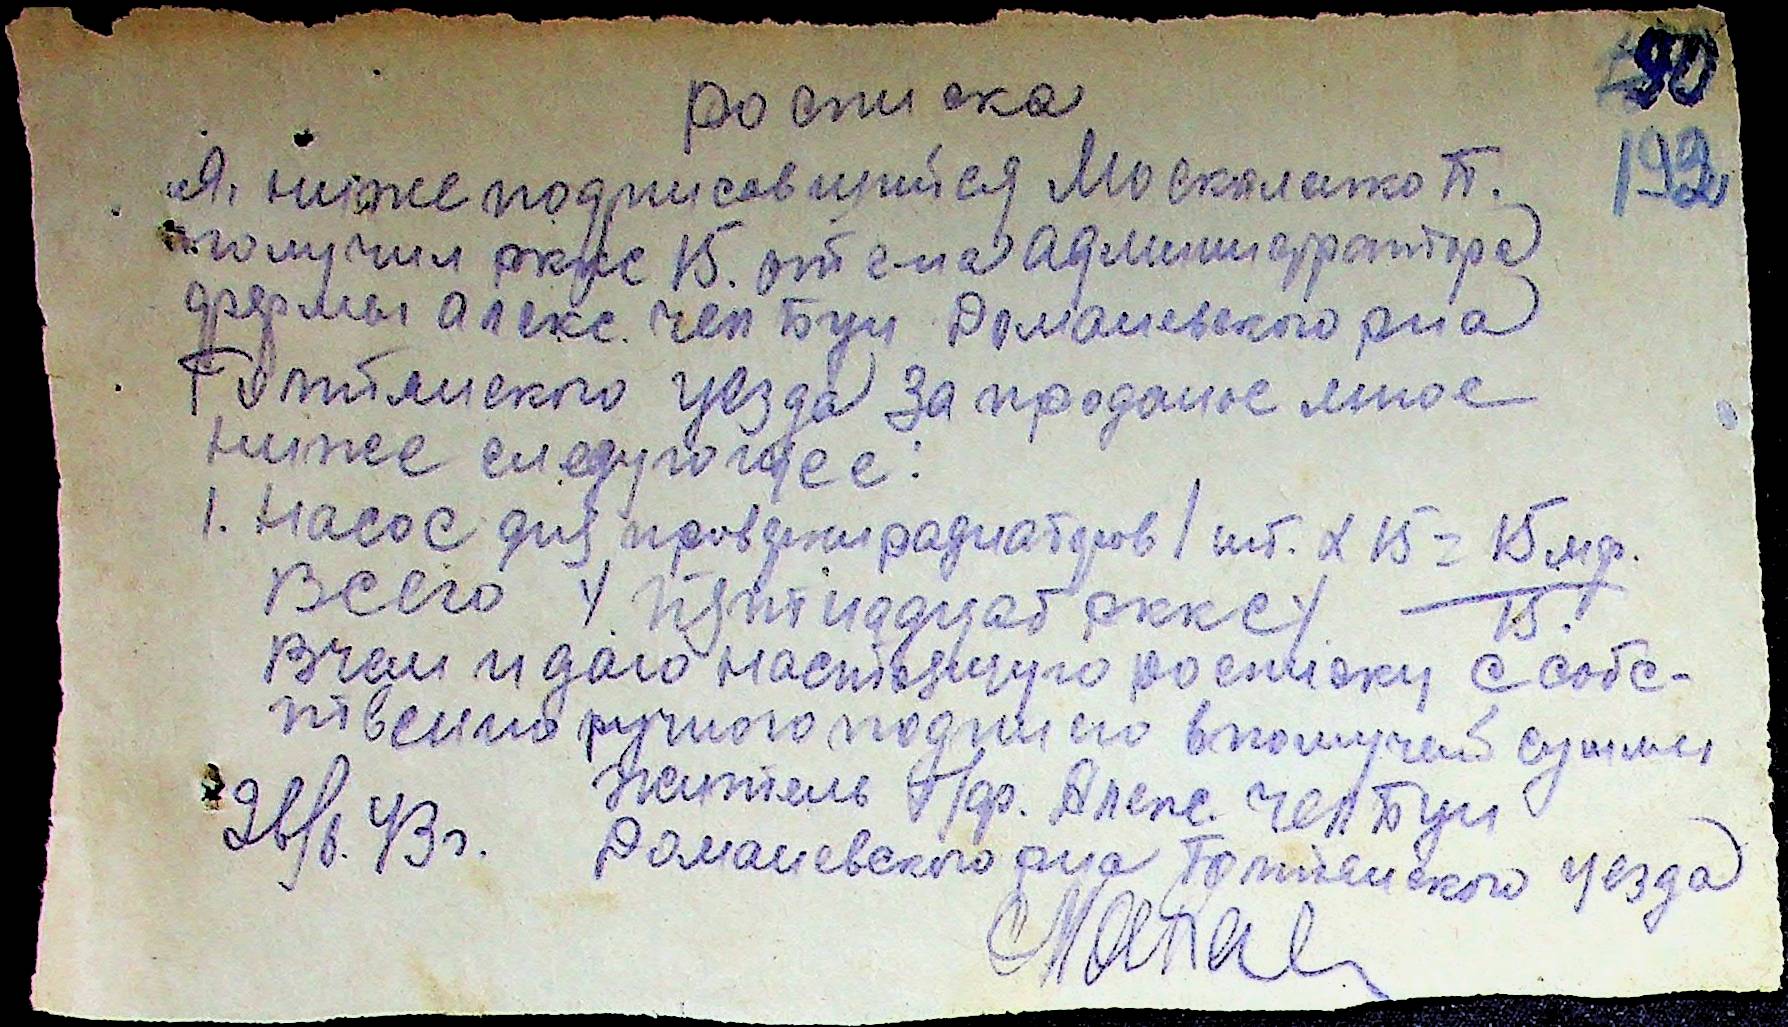 90
192
росписка
Я, ниже подписавщийся Москаленко П.
получил ркке 15. от с-на администратора
фермы Алекс. Чентуи Доманевского р-на
Голтянского уезда за проданое мною
ниже следующее:
1. Насос для проверки радиаторов 1 шт. х 15 = 15 мр.
Всего / Пятнадцат рккс / 15.
В чем и даю настоящую росписку с собс-
твенно ручного подписю в получей суммы
Житель фр. Алекс. Чентуи
43 г. Доманевского р-на Голтянского уезда